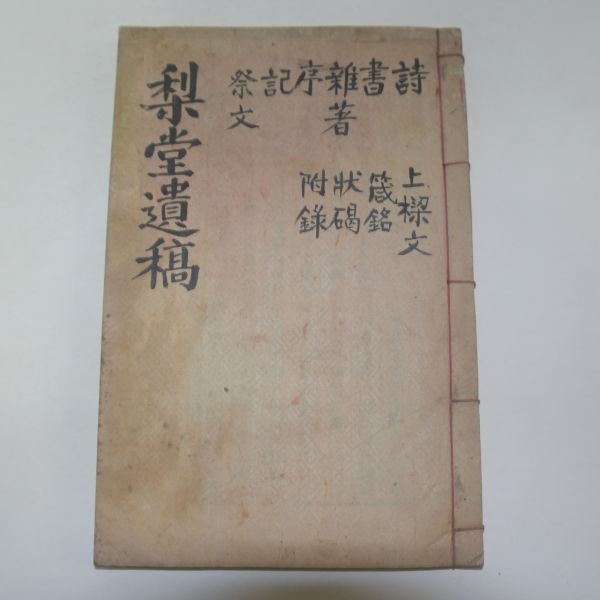 梨堂遺稿
詩
書
雜著
序
記
祭文
上樑文
箴銘
狀碣
附錄